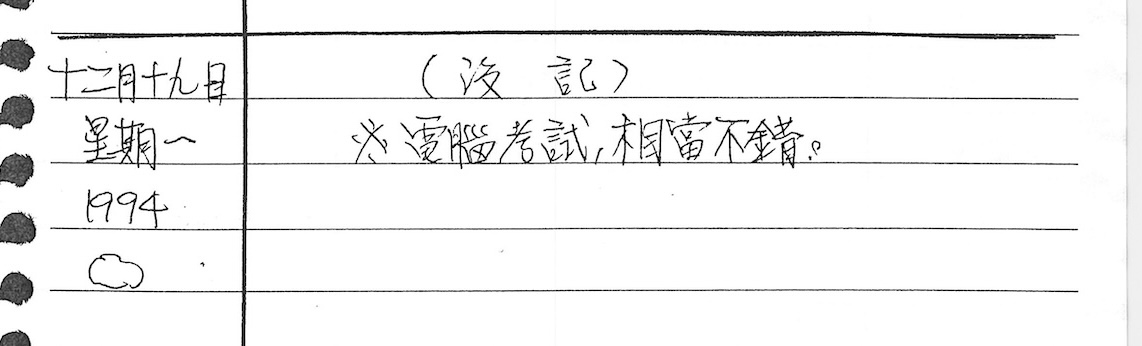 十二月十九日
星期一
1994
(沒 記)
※電腦考試,相當不錯。